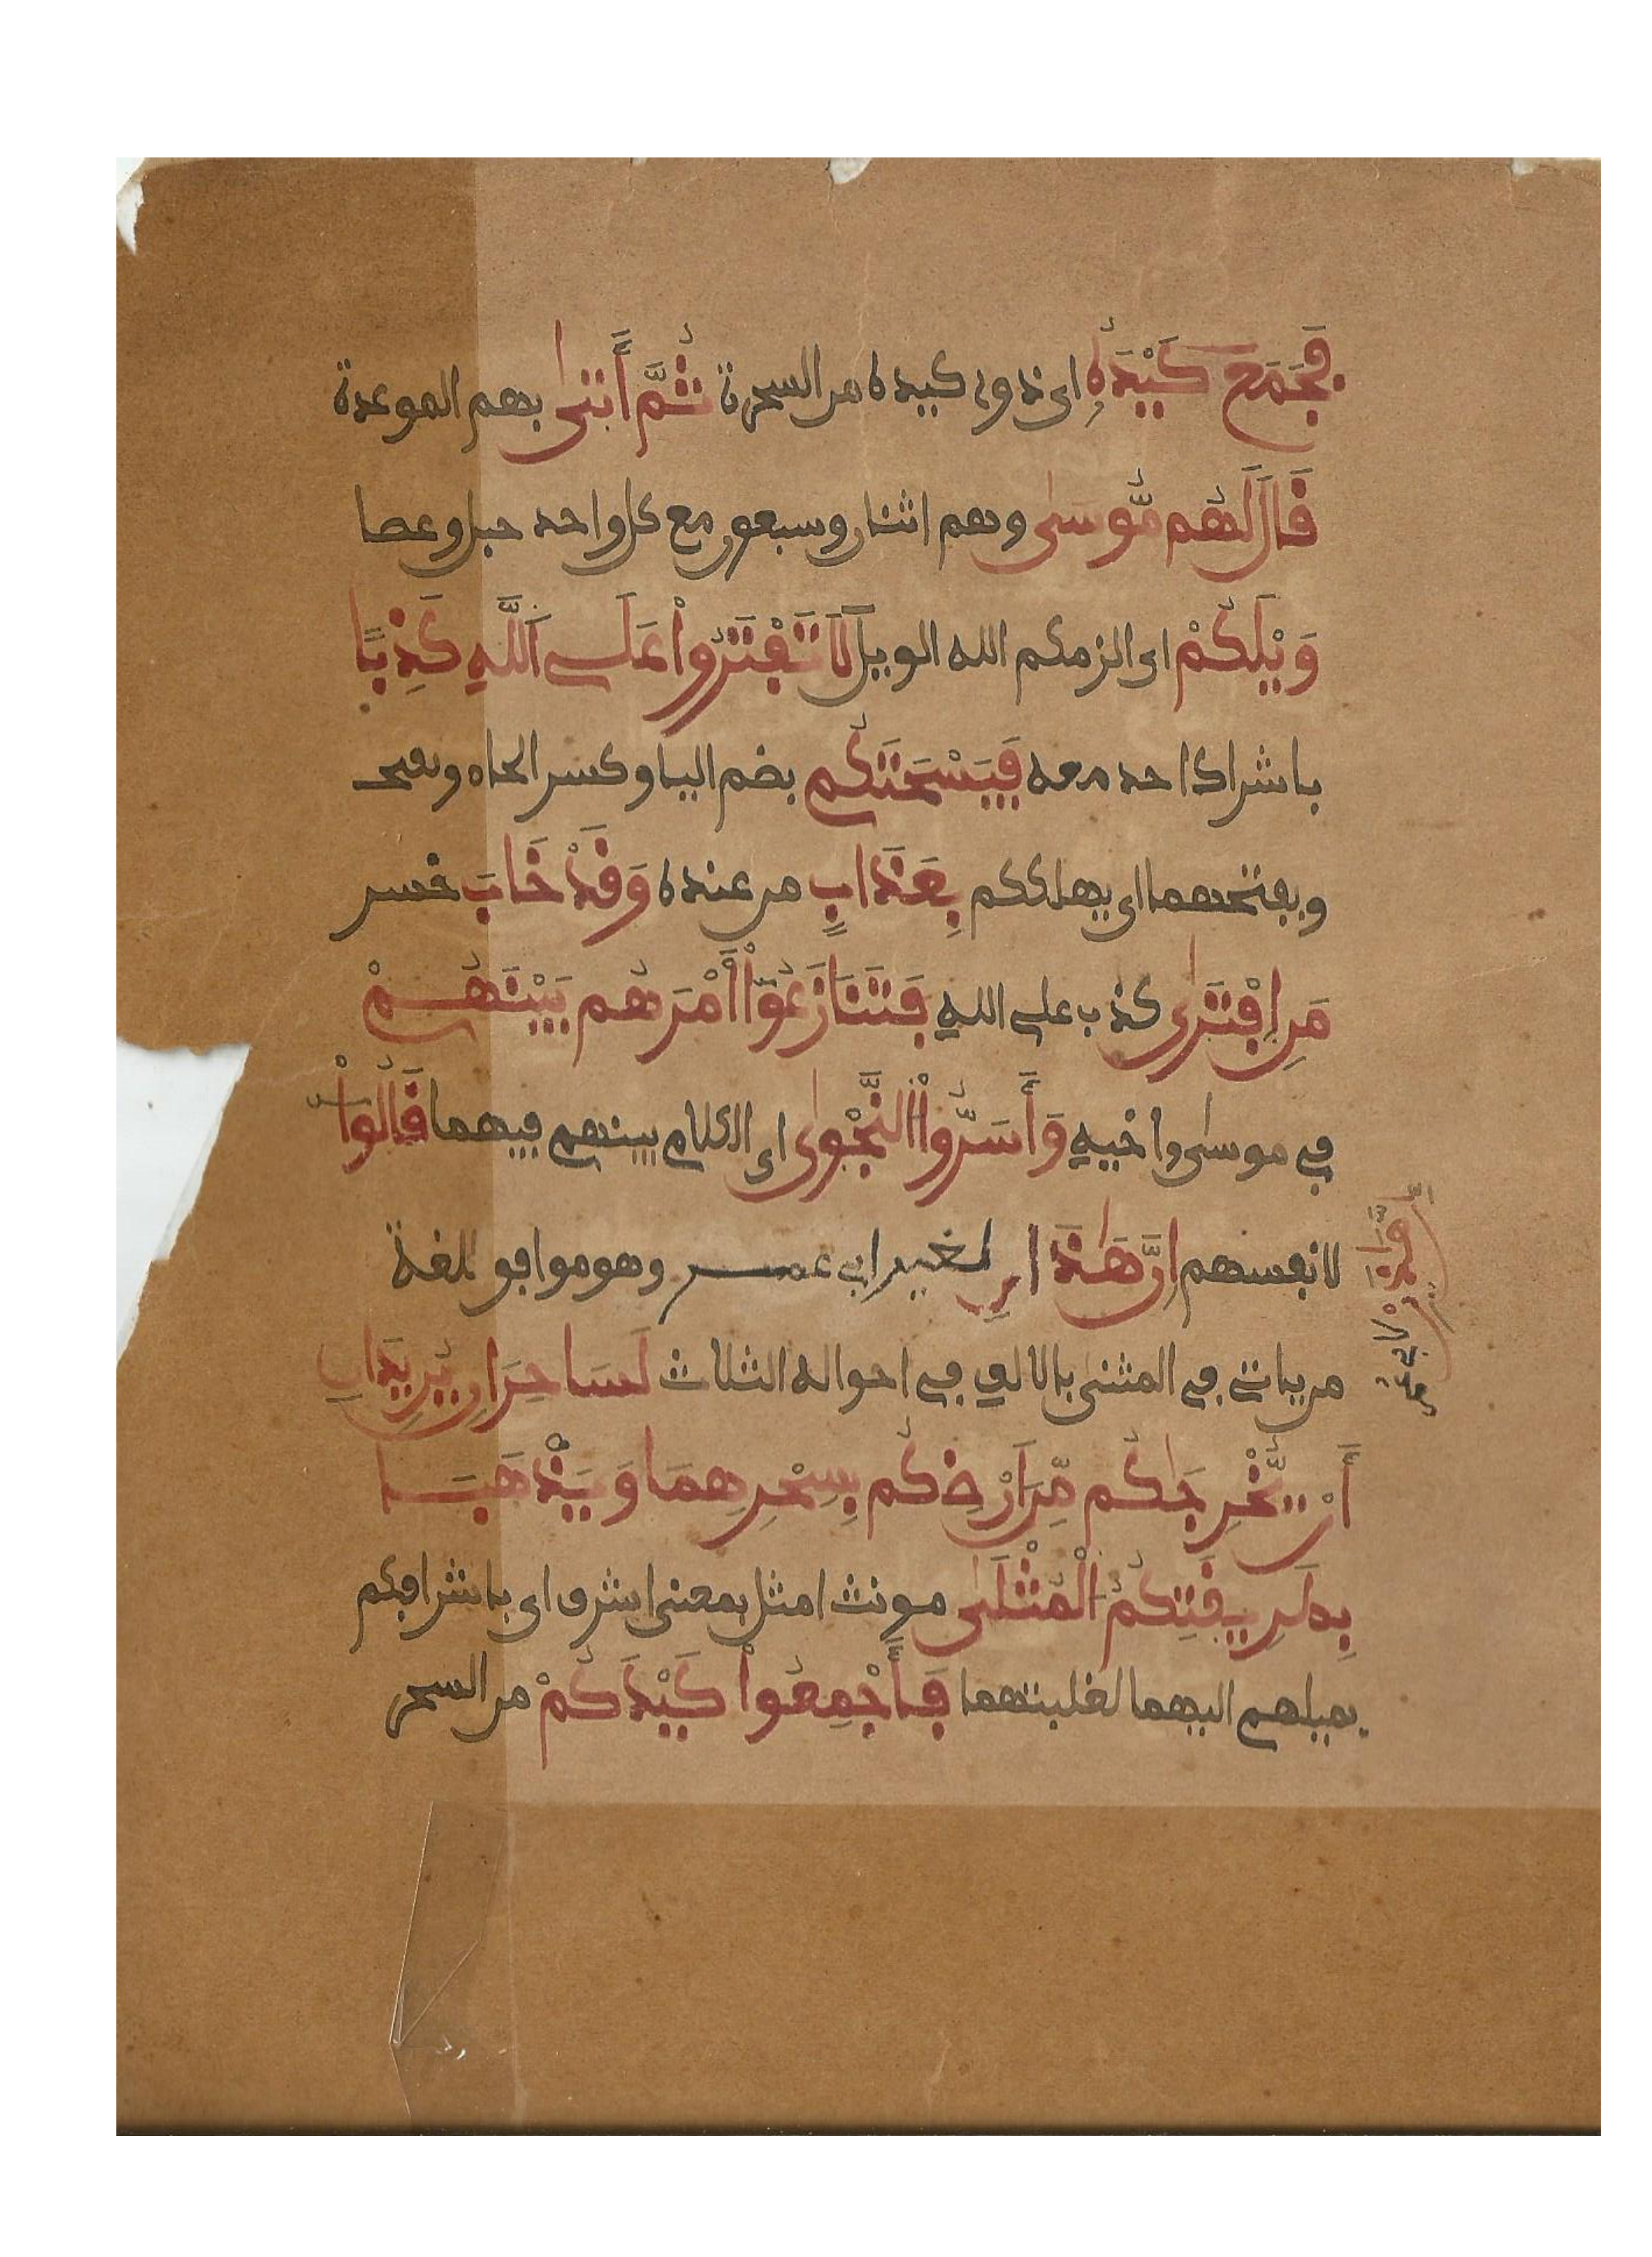 فَجَمَعَ كَيْدَهُ اى ذوى كيده من السحرة ثُمَّ أَتىٰ بهم الموعدة
قَالَ لَهُم مُّوسىٰ وهم اثنان وسبعون مع كل واحد حبل وعصا
وَيْلَكُمْ اى الزمكم الله الويل لَا تَفْتَرُواْ عَلَى اَللَّهِ كَذِبًا
باشراك احد معه فَيَسْحَتَكُم بضم اليا وكسر الحاء وبفتح
وبفتحهما اى يهلككم بِعَذَابٍ من عنده وَقَدْ خَابَ خسر
مَنِ اِفْتَرىٰ كذب على الله فَتَنَازَعُوٓاْ أَمْرَهُم بَيْنَهُمْ
في موسى واخيه وَأَسَرُّواْ النَّجْوىٰ اى الكلام بينهم فيهما قَالُواْ
لانفسهم إِنَّ هَٰذَانِ لغير ابي عمر وهو موافق للغة
من ياتي في المثنى بالالف في احواله الثلاث لَسَاحِرَانِ يُرِيدَانِ
أَنْ يُّخْرِجَٰكُم مِّنَ اَرْضِكُم بِسِحْرِهِمَا وَيَذْهَبَا
بِطَرِيقَتِكُمُ الْمُثْلَىٰ مونث امثل بمعنى اشرف اى باشرافكم
بميلهم اليهما لغلبتهما فَأَجْمِعُواْ كَيْدَكُمْ من السحر